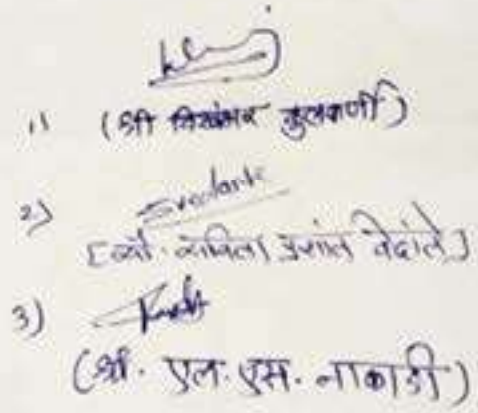 1) (श्री विश्वंभर कुलकर्णी)
2)
[सौ. कविता प्रशांत वेदांते]
3)
(श्री. एल. एस. नाकाडी)